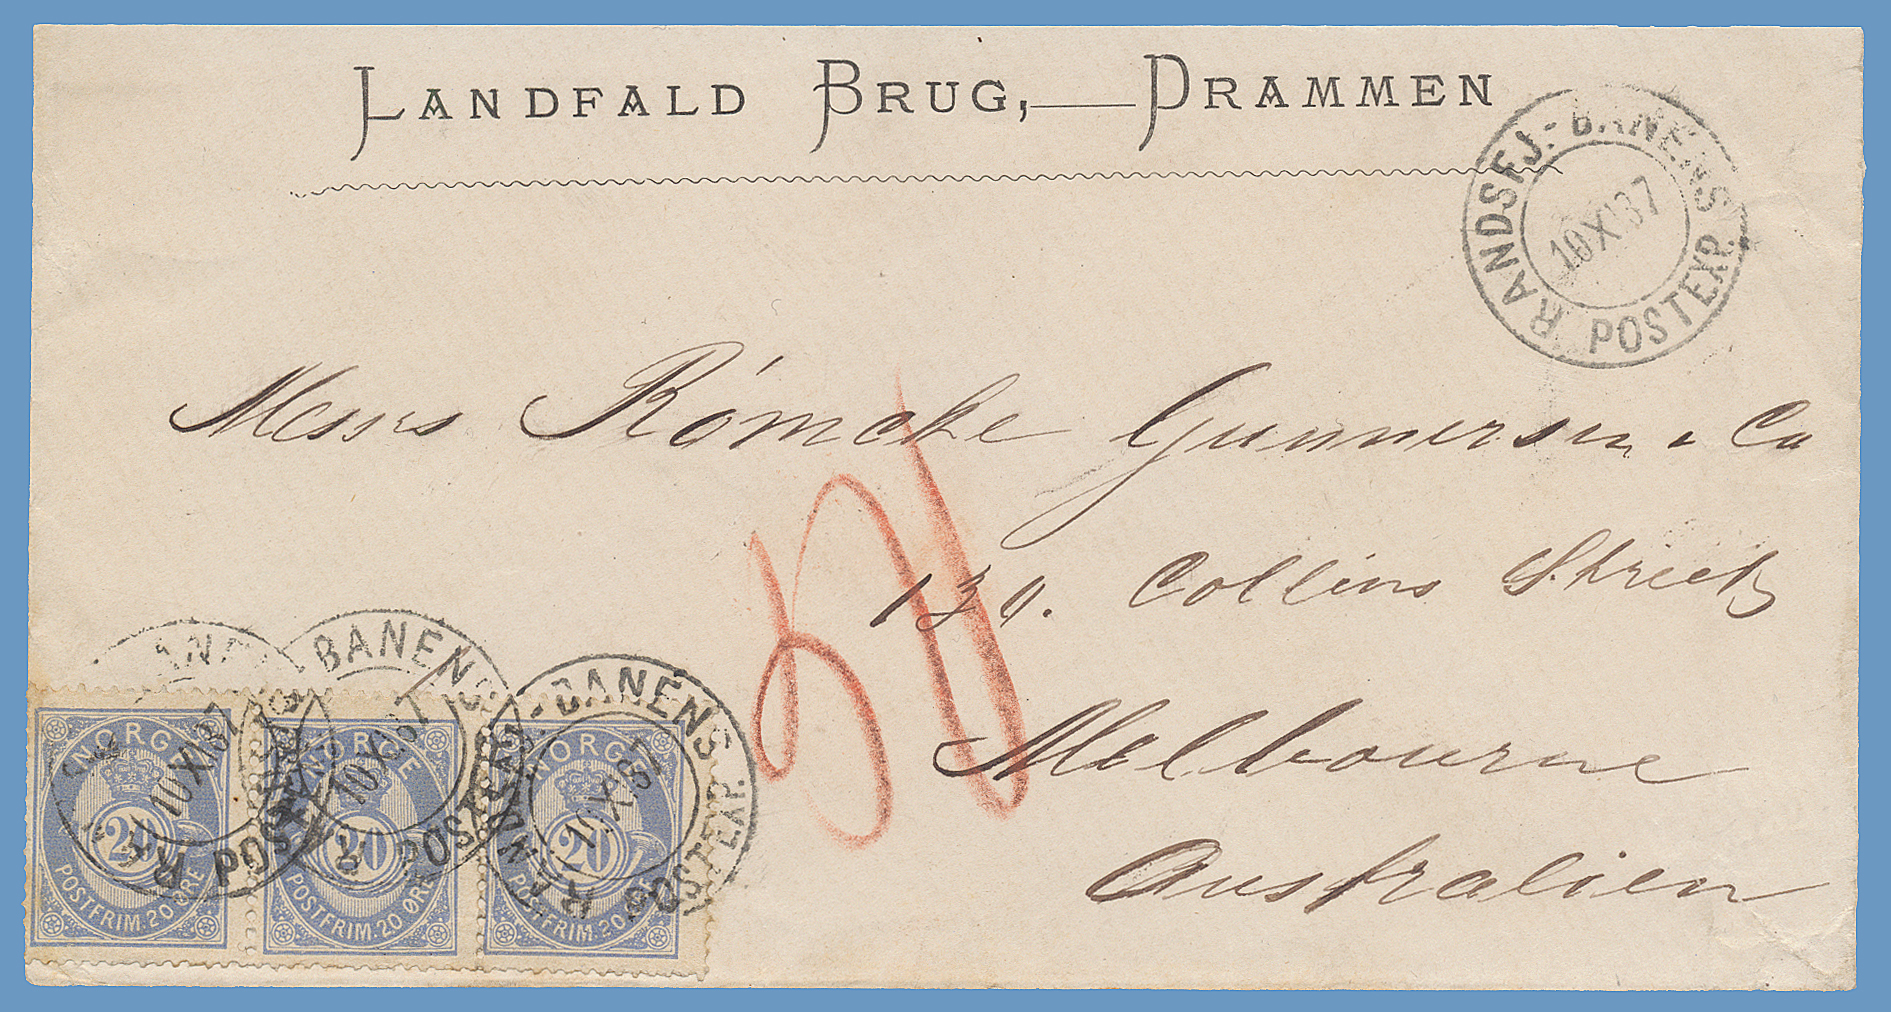 LANDFALD BRUG,—DRAMMEN
RANDSFJ.-BANENS POSTEXP.
10 XI 87
Messrs Römcke Gunnersen & Co
130. Collins Street
Melbourne
Australien
BANENS R POSTEXP.
10 XI 87
BANENS R POSTEXP.
10 XI 87
-BANENS POSTEXP. RAND
10 XI 87
NORGE
20
POSTFRIM. 20 ØRE
NORGE
20
POSTFRIM. 20 ØRE
NORGE
20
POSTFRIM. 20 ØRE